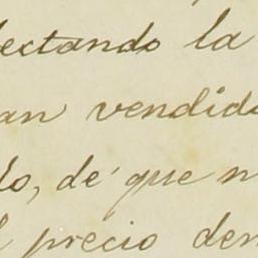 ectando la
an vendid
do, de que n
l precio den